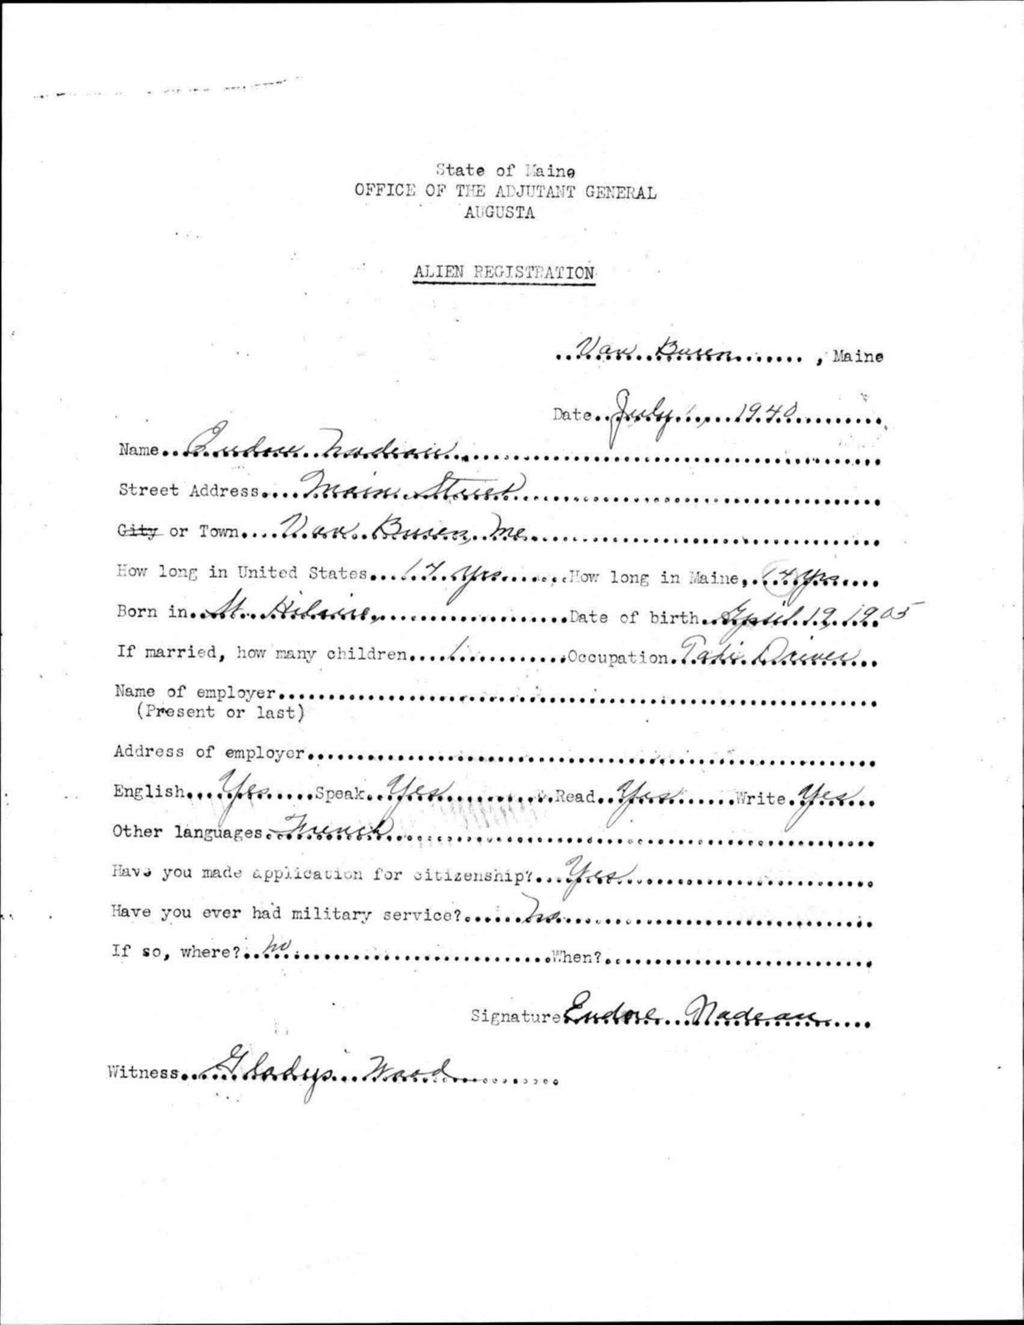 State of Maine
OFFICE OF THE ADJUTANT GENERAL
AUGUSTA
ALIEN REGISTRATION
Van Buren, Maine
Date July 1940
Name Eudore Nadeau
Street Address Main Street
City or Town Van Buren, Me.
How long in United States 14 yrs How long in Maine, 14 yrs
Born in St. Hilaire, Date of birth April 19, 1905
If married, how many children 1 Occupation Taxi Driver
Name of employer
(Present or last)
Address of employer
English Yes Speak Yes Read Yes Write Yes
Other languages French
Have you made application for citizenship? Yes
Have you ever had military service? no
If so, where? no When?
Signature Eudore Nadeau
Witness Gladys Wood